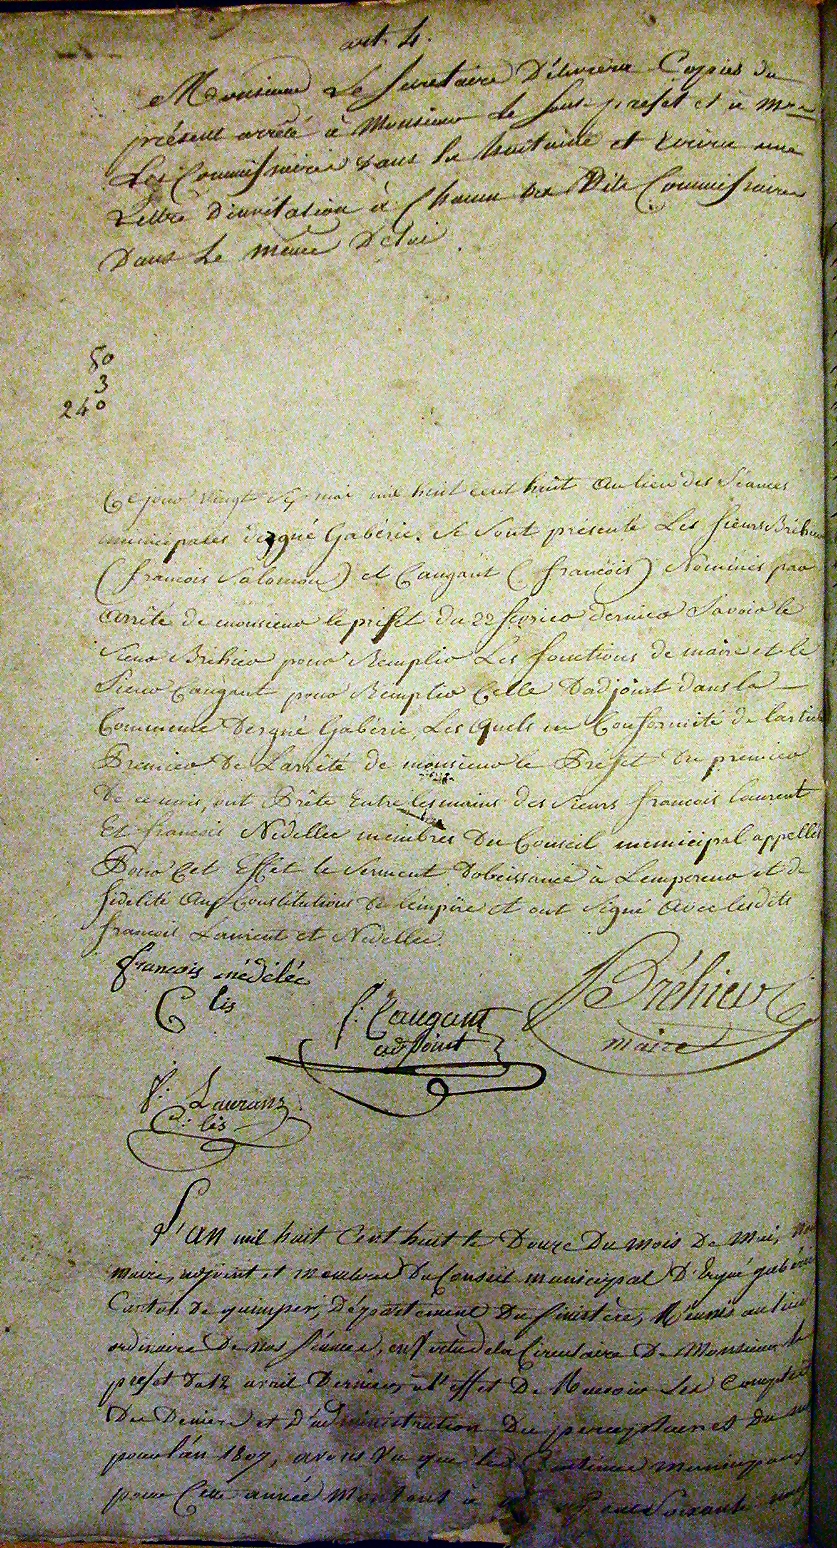 art. 4.
Monsieur Le Secretaire Délivrera Copies du
présent arrêté à Monsieur le Sous prefet et à
Les Commissaires dans la huitaine et ecrira une
Lettre d'invitation à Chacun des Dits Commissaires
Dans Le même Delai.
80
3
240
Ce jour vingt mai mil huit cent huit au lieu des Séances
municipales d'ergué Gabéric. Se Sont présenté Les Sieurs Bréhier
(francois Salomon) et Caugant (francois) Nommés par
arrêté de monsieur le préfet du 22 fevrier dernier Savoir le
Sieur Bréhier pour Remplir Les fonctions de maire et le
Sieur Caugant pour Remplir Celle D'adjoint dans la
Commune Dergué Gabéric, Les quels en Conformité de l'article
Premier De L'arrêté de monsieur le Préfet Du premier
De ce mois, ont Prêté Entre les mains des Sieurs francois laurent
Et francois Nédellec membres Du Conseil municipal appellés
Pour Cet Effet le Serment D'obeissance à L'empereur et de
fidelité aux Constitutions De l'empire et ont Signé avec lesdits
francois Laurent et Nédellec.
francois nédélec
C lis
f. Caugant
adjoint
Bréhier
maire
f. Laurans
C. lis
L'an mil huit Cent huit le Douze Du mois De Mai, nous
maire, adjoint et membres Du Conseil municipal D'Ergué gabéric
Canton De quimper, Département Du finistère, Réunis au lieu
ordinaire De nos séances, en Vertu de la Circulaire De Monsieur le
prefet Du 12 avril Dernier, à l'effet De Recevoir Les Comptes
Des Deniers et D'administration Du percepteur et du
pour l'an 1807, avons Vu que les Centimes municipaux
pour Cette année Montent à Soixante